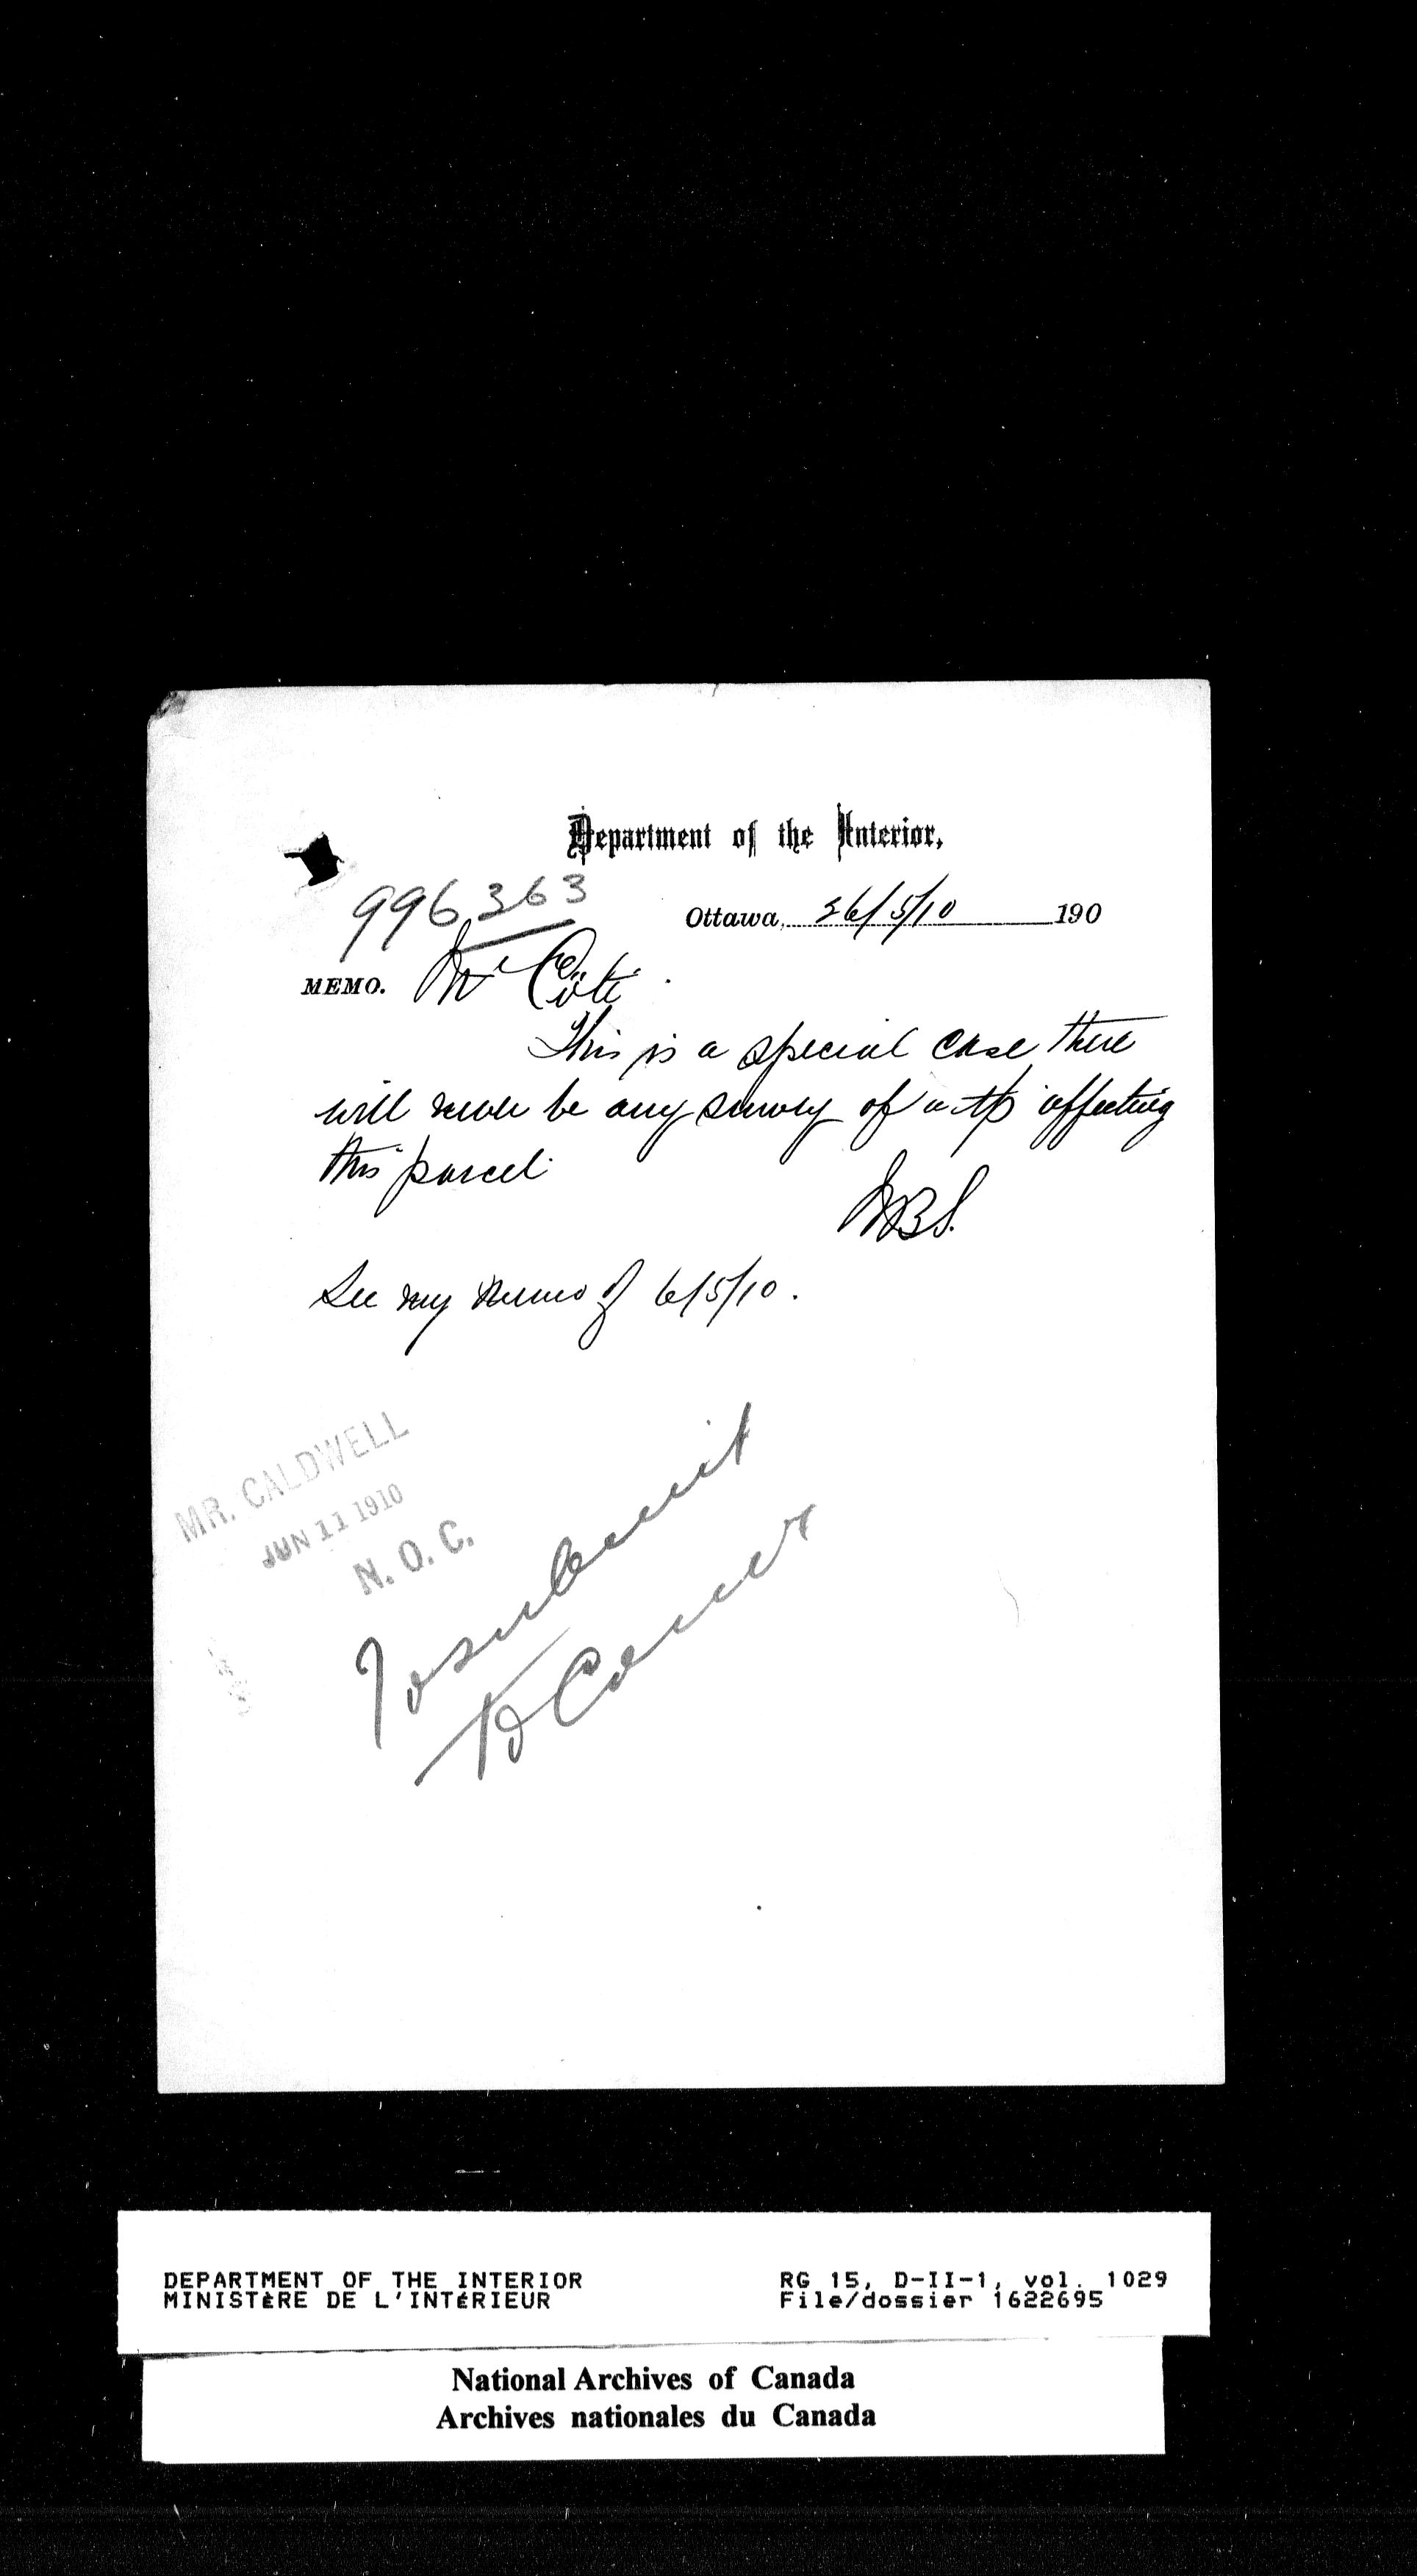 Department of the Interior,
996363
Ottawa, 26/5/10 190
MEMO. Mr Côté
This is a special case there
will never be any survey of a tp affecting
this parcel.
See my memo of 6/5/10.
MR. CALDWELL
JUN 11 1910
N. O. C.
DEPARTMENT OF THE INTERIOR
MINISTÈRE DE L'INTÉRIEUR
RG 15, D-II-1, vol. 1029
File/dossier 1622695
National Archives of Canada
Archives nationales du Canada